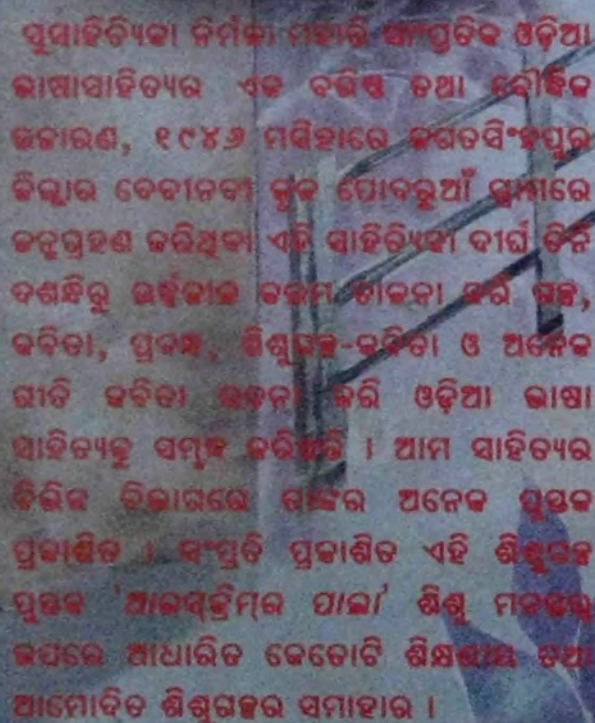 ସୁସାହିତ୍ୟିକା ନିର୍ମଳା ମହାନ୍ତି ସାଂପ୍ରତିକ ଓଡ଼ିଆ
ଭାଷାସାହିତ୍ୟର ଏକ ବଳିଷ୍ଠ ତଥା ବୌଦ୍ଧିକ
ଉଚ୍ଚାରଣ, ୧୯୪୬ ମସିହାରେ ଜଗତସିଂହପୁର
ଜିଲ୍ଲାର ଦେବୀନଦୀ କୂଳ ପୋଦରୁଆଁ ଗ୍ରାମରେ
ଜନ୍ମଗ୍ରହଣ କରିଥିବା ଏହି ସାହିତ୍ୟିକା ଦୀର୍ଘ ତିନି
ଦଶନ୍ଧିରୁ ଊର୍ଦ୍ଧ୍ୱକାଳ କଲମ ଚାଳନା କରି ଗଳ୍ପ,
କବିତା, ପ୍ରବନ୍ଧ, ଶିଶୁଗଳ୍ପ-କବିତା ଓ ଅନେକ
ଗୀତି କବିତା ରଚନା କରି ଓଡ଼ିଆ ଭାଷା
ସାହିତ୍ୟକୁ ସମୃଦ୍ଧ କରିଛନ୍ତି । ଆମ ସାହିତ୍ୟର
ବିଭିନ୍ନ ବିଭାଗରେ ତାଙ୍କର ଅନେକ ପୁସ୍ତକ
ପ୍ରକାଶିତ । ସଂପ୍ରତି ପ୍ରକାଶିତ ଏହି ଶିଶୁଗଳ୍ପ
ପୁସ୍ତକ 'ଆଇସ୍କ୍ରିମ୍‌ର ପାଇଁ' ଶିଶୁ ମନସ୍ତତ୍ତ୍ୱ
ଉପରେ ଆଧାରିତ କେତୋଟି ଶିକ୍ଷଣୀୟ ତଥା
ଆମୋଦିତ ଶିଶୁଗଳ୍ପର ସମାହାର ।